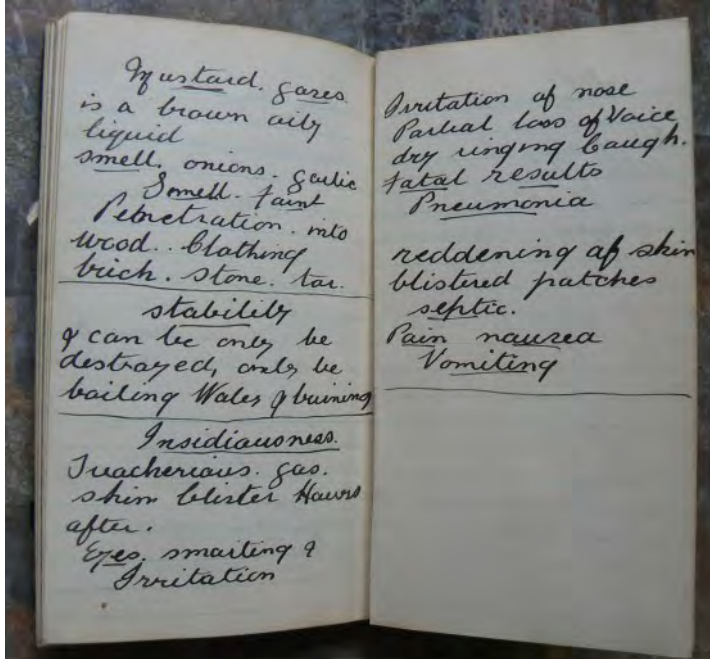 Mustard. gases.
is a brown oily
liquid
smell. onions. garlic
Smell. faint
Penetration. into
wood.. Clothing
brick. stone. tar.
stability
& can be only be
destroyed, only be
boiling Water & burning
Insidiousness.
Treacherious. gas.
skin blister Hours
after.
Eyes. smarting &
Irritation
Irritation of nose
Partial loss of Voice
dry ringing Cough.
fatal results
Pneumonia
reddening of skin
blistered patches
septic.
Pain nausea
Vomiting